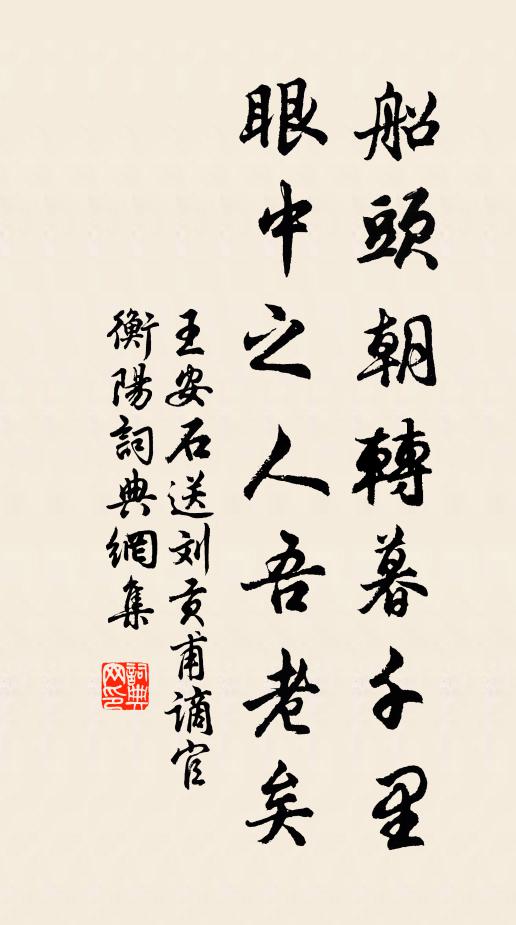 船頭朝轉暮千里
眼中之人吾老矣
王安石送刘贡甫谪官
衡陽詞典網集
詞典网印